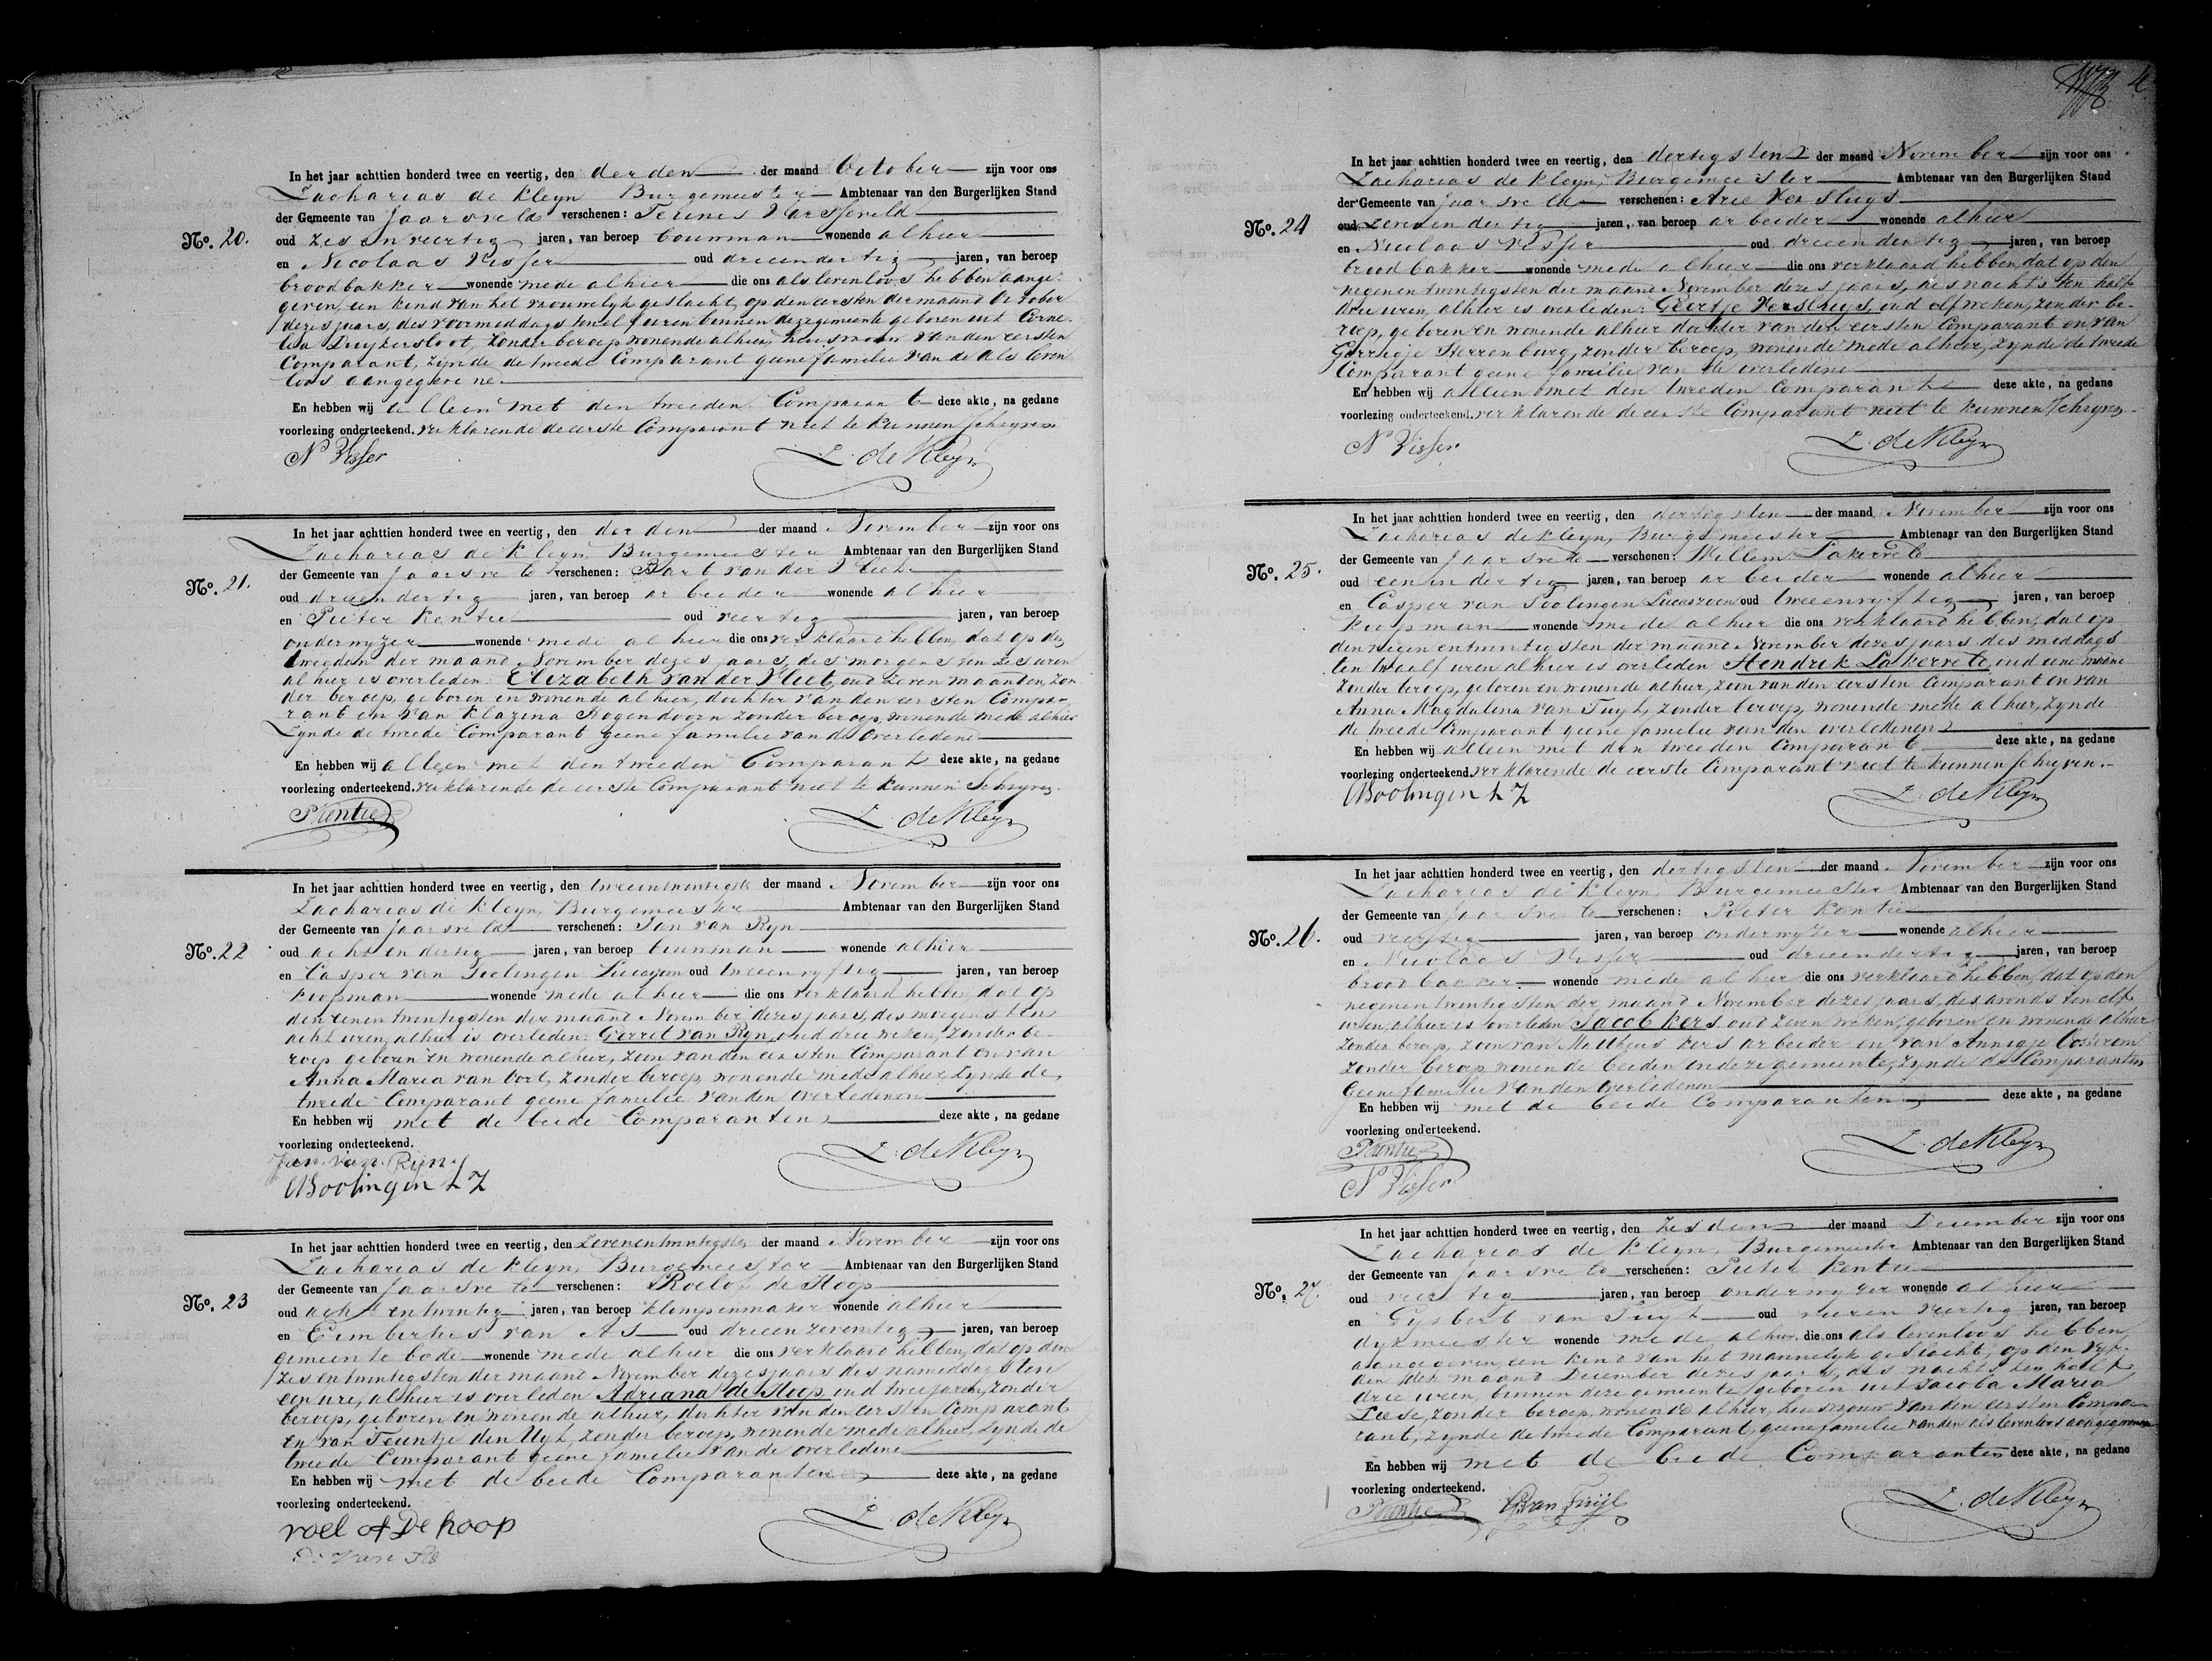 In het jaar achttien honderd twee en veertig, den derden der maand October zijn voor ons
Zacharias de Kleyn Burgemeester Ambtenaar van den Burgerlijken Stand
der Gemeente van Jaarsveld verschenen: Teunis
No. 20. oud zes en veertig jaren, van beroep bouwman wonende alhier
en Nicolaas Visser oud drieendertig jaren, van beroep
broodbakker wonende mede alhier die ons als levenloos hebben aange-
geven, een kind van het vrouwelyk geslacht, op den eersten der maand October
dezes jaars, des voormiddags ten elf uren binnen deze gemeente geboren uit Corne-
lia Duykersloot, zonder beroep wonende alhier, huisvrouw van den eersten
Comparant, zynde de tweede Comparant geene familie van de als leven
loos aangegevene
En hebben wij alleen met den tweeden Comparant deze akte, na gedane
voorlezing onderteekend. verklarende de eerste Comparant niet te kunnen schryven
N Visser Z. de Kleyn
In het jaar achttien honderd twee en veertig, den derden der maand November zijn voor ons
Zacharias de Kleyn, Burgemeester Ambtenaar van den Burgerlijken Stand
der Gemeente van Jaarsveld verschenen: Bart van der Vliet
No. 21. oud drieendertig jaren, van beroep arbeider wonende alhier
en Pieter Kentie oud veertig jaren, van beroep
onderwyzer wonende mede alhier die ons verklaard hebben, dat op den
tweeden der maand November dezes jaars, des morgens ten zes uren
alhier is overleden: Elizabeth van der Vliet, oud zeven maanden, zon
der beroep, geboren en wonende alhier, dochter van den eersten Compa-
rant en van Klazina Hogendoorn zonder beroep, wonende mede alhier
zynde de tweede Comparant geene familie van de overledene
En hebben wij alleen met den tweeden Comparant deze akte, na gedane
voorlezing onderteekend. verklarende de eerste Comparant niet te kunnen schryven
PKentie Z. de Kleyn
In het jaar achttien honderd twee en veertig, den tweeentwintigste der maand November zijn voor ons
Zacharias de Kleyn, Burgemeester Ambtenaar van den Burgerlijken Stand
der Gemeente van Jaarsveld verschenen: Jan van Ryn
No. 22 oud acht en dertig jaren, van beroep bouwman wonende alhier
en Casper van Toolingen Lucaszoon oud tweeenvyftig jaren, van beroep
koopman wonende mede alhier die ons verklaard hebben, dat op
den eenentwintigsten der maand November dezes jaars, des morgens ten
acht uren, alhier is overleden: Gerret van Ryn, oud drie weken, zonder be-
roep geboren en wonende alhier, zoon van den eersten Comparant en van
Anna Maria van Oort, zonder beroep, wonende mede alhier, zynde de
tweede Comparant geene familie van den overledenen
En hebben wij met de beide Comparanten deze akte, na gedane
voorlezing onderteekend.
Jan van Rijn Z. de Kleyn
In het jaar achttien honderd twee en veertig, den zevenentwintigste der maand November zijn voor ons
Zacharias de Kleyn, Burgemeester Ambtenaar van den Burgerlijken Stand
der Gemeente van Jaarsveld verschenen: Roelof de Hoop
No. 23 oud acht entwintig jaren, van beroep klompenmaker wonende alhier
en Eimbertus van As oud drieenzeventig jaren, van beroep
gemeente bode wonende mede alhier die ons verklaard hebben, dat op den
zesentwintigsten der maand November dezes jaars des namiddags ten
een ure, alhier is overleden Adriana de Hoop, oud twee jaren, zonder
beroep, geboren en wonende alhier, dochter van den eersten Comparant
en van Teuntje den Uyl, zonder beroep, wonende mede alhier, zynde de
tweede Comparant geene familie van de overledene
En hebben wij met de beide Comparanten deze akte, na gedane
voorlezing onderteekend.
roelof De hoop Z. de Kleyn
E. van As
In het jaar achttien honderd twee en veertig, den dertigsten der maand November zijn voor ons
Zacharias de Kleyn, Burgemeester Ambtenaar van den Burgerlijken Stand
der Gemeente van Jaarsveld verschenen: Arie Versluys
No. 24 oud zeven en dertig jaren, van beroep arbeider wonende alhier
en Nicolaas Visser oud drieendertig jaren, van beroep
broodbakker wonende mede alhier die ons verklaard hebben, dat op den
negenentwintigsten der maand November dezes jaars, des nachts ten half
drie uren, alhier is overleden: Geertje Versluys, oud elf weken, zonder be-
roep, geboren en wonende alhier dochter van den eersten Comparant en van
Gerrigje Sterrenburg, zonder beroep, wonende mede alhier, zynde de tweede
Comparant geene familie van de overledene
En hebben wij alleen met den tweeden Comparant deze akte, na gedane
voorlezing onderteekend. verklarende de eerste Comparant niet te kunnen schryven
N Visser Z. de Kleyn
In het jaar achttien honderd twee en veertig, den dertigsten der maand November zijn voor ons
Zacharias de Kleyn, Burgemeester Ambtenaar van den Burgerlijken Stand
der Gemeente van Jaarsveld verschenen: Willem Lakerveld
No. 25. oud eenendertig jaren, van beroep arbeider wonende alhier
en Casper van Toolingen Lucaszoon oud tweeenvyftig jaren, van beroep
koopman wonende mede alhier die ons verklaard hebben, dat op
den negenentwintigsten der maand November dezes jaars des middags
ten twaalf uren alhier is overleden Hendrik Lakerveld, oud eene maand
zonder beroep, geboren en wonende alhier, zoon van den eersten Comparant en van
Anna Magdalena van Tuyl, zonder beroep, wonende mede alhier, zynde
de tweede Comparant geene familie van den overledenen
En hebben wij alleen met den tweeden Comparant deze akte, na gedane
voorlezing onderteekend. verklarende de eerste Comparant niet te kunnen schryven.
Z. de Kleyn
In het jaar achttien honderd twee en veertig, den dertigsten der maand November zijn voor ons
Zacharias de Kleyn, Burgemeester Ambtenaar van den Burgerlijken Stand
der Gemeente van Jaarsveld verschenen: Pieter Kentie
No. 26. oud veertig jaren, van beroep onderwyzer wonende alhier
en Nicolaas Visser oud drieendertig jaren, van beroep
broodbakker wonende mede alhier die ons verklaard hebben, dat op den
negenentwintigsten der maand November dezes jaars, des avonds ten elf
uren, alhier is overleden Jacob Kers oud zeven weken, geboren en wonende alhier
zonder beroep, zoon van Mattheus Kers arbeider en van Annigje Oosterom
zonder beroep wonende beiden in deze gemeente, zynde de Comparanten
geene familie van den overledenen
En hebben wij met de beide Comparanten deze akte, na gedane
voorlezing onderteekend.
PKentie Z. de Kleyn
N Visser
In het jaar achttien honderd twee en veertig, den zesden der maand December zijn voor ons
Zacharias de Kleyn, Burgemeester Ambtenaar van den Burgerlijken Stand
der Gemeente van Jaarsveld verschenen: Pieter Kentie
No. 27. oud veertig jaren, van beroep onderwyzer wonende alhier
en Gysbert van Tuyl oud vieren veertig jaren, van beroep
dykmeester wonende mede alhier die ons als levenloos hebben
aangegeven, een kind van het mannelyk geslacht, op den vyf-
den der maand December dezes jaars, des nachts ten half
drie uren, binnen deze gemeente geboren uit Jacoba Maria
zonder beroep, wonende alhier, huisvrouw van den eersten Compa-
rant, zynde de tweede Comparant geene familie van den als levenloos aangegevenen
En hebben wij met de beide Comparanten deze akte, na gedane
voorlezing onderteekend.
PKentie GvanTuijl Z. de Kleyn